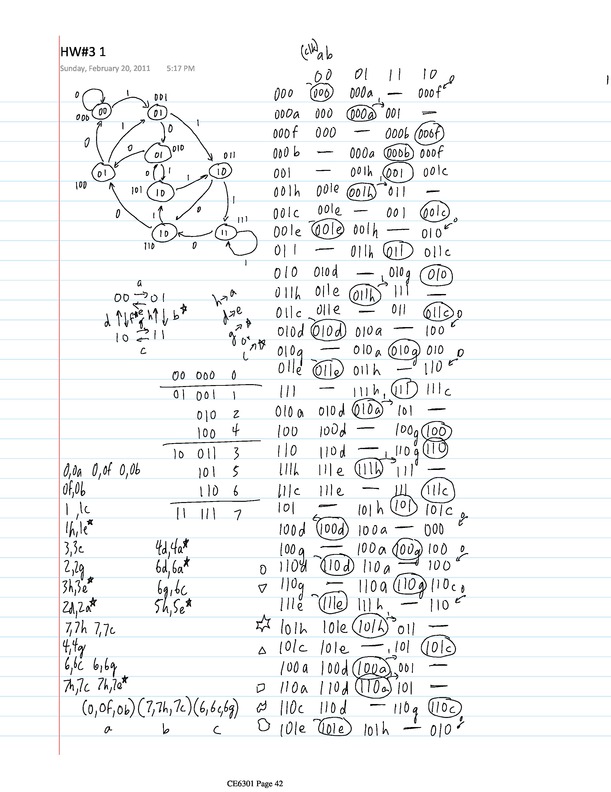 HW#3 1
Sunday, February 20, 2011 5:17 PM
(clk) ab
00 01 11 10
000 000 000a — 000f
000a 000 000a 001 —
000f 000 — 000b 000f
000b — 000a 000b 000f
001 — 001h 001 001c
001h 001e 001h 011 —
001c 001e — 001 001c
001e 001e 001h — 010
011 — 011h 011 011c
010 010d — 010g 010
011h 011e 011h 111 —
011c 011e — 011 011c
010d 010d 010a — 100
010g — 010a 010g 010
011e 011e 011h — 110
111 — 111h 111 111c
010a 010d 010a 101 —
100 100d — 100g 100
110 110d — 110g 110
111h 111e 111h 111 —
111c 111e — 111 111c
101 — 101h 101 101c
100d 100d 100a — 000
100g — 100a 100g 100
110d 110d 110a — 100
110g — 110a 110g 110c
111e 111e 111h — 110
101h 101e 101h 011 —
101c 101e — 101 101c
100a 100d 100a 001 —
110a 110d 110a 101 —
110c 110d — 110g 110c
101e 101e 101h — 010
0 000 00 1 001 01
01 010 011 10
100 01 101 10
110 10 111 11
a
00 01
d b*
10 11
c
h→a
d→e
00 000 0
01 001 1
010 2
100 4
10 011 3
101 5
110 6
11 111 7
0,0a 0,0f 0,0b
0f,0b
1,1c
1h,1e*
3,3c 4d,4a*
2,2g 6d,6a*
3h,3e* 6g,6c
2d,2a* 5h,5e*
7,7h 7,7c
4,4g
6,6c 6,6g
7h,7c 7h,7e*
(0,0f,0b)(7,7h,7c)(6,6c,6g)
a b c
CE6301 Page 42